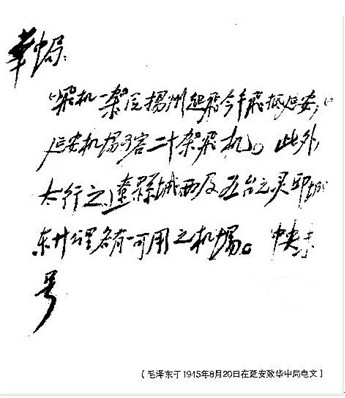 华中局:
飛机一架從揚州起飛今午飛抵延安,
延安机場可容二十架飛机。此外,
太行之遼縣城西及五台之灵邱城
东廿里各有一可用之机場。中央
号
(毛泽东于1945年8月20日在延安致华中局电文)